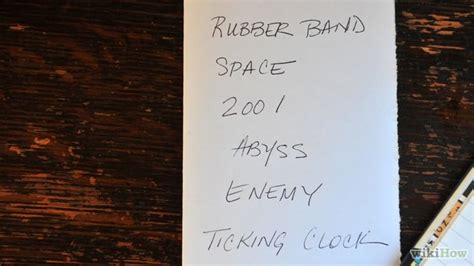 RUBBER BAND
SPACE
2001
ABYSS
ENEMY
TICKING CLOCK
wikiHow